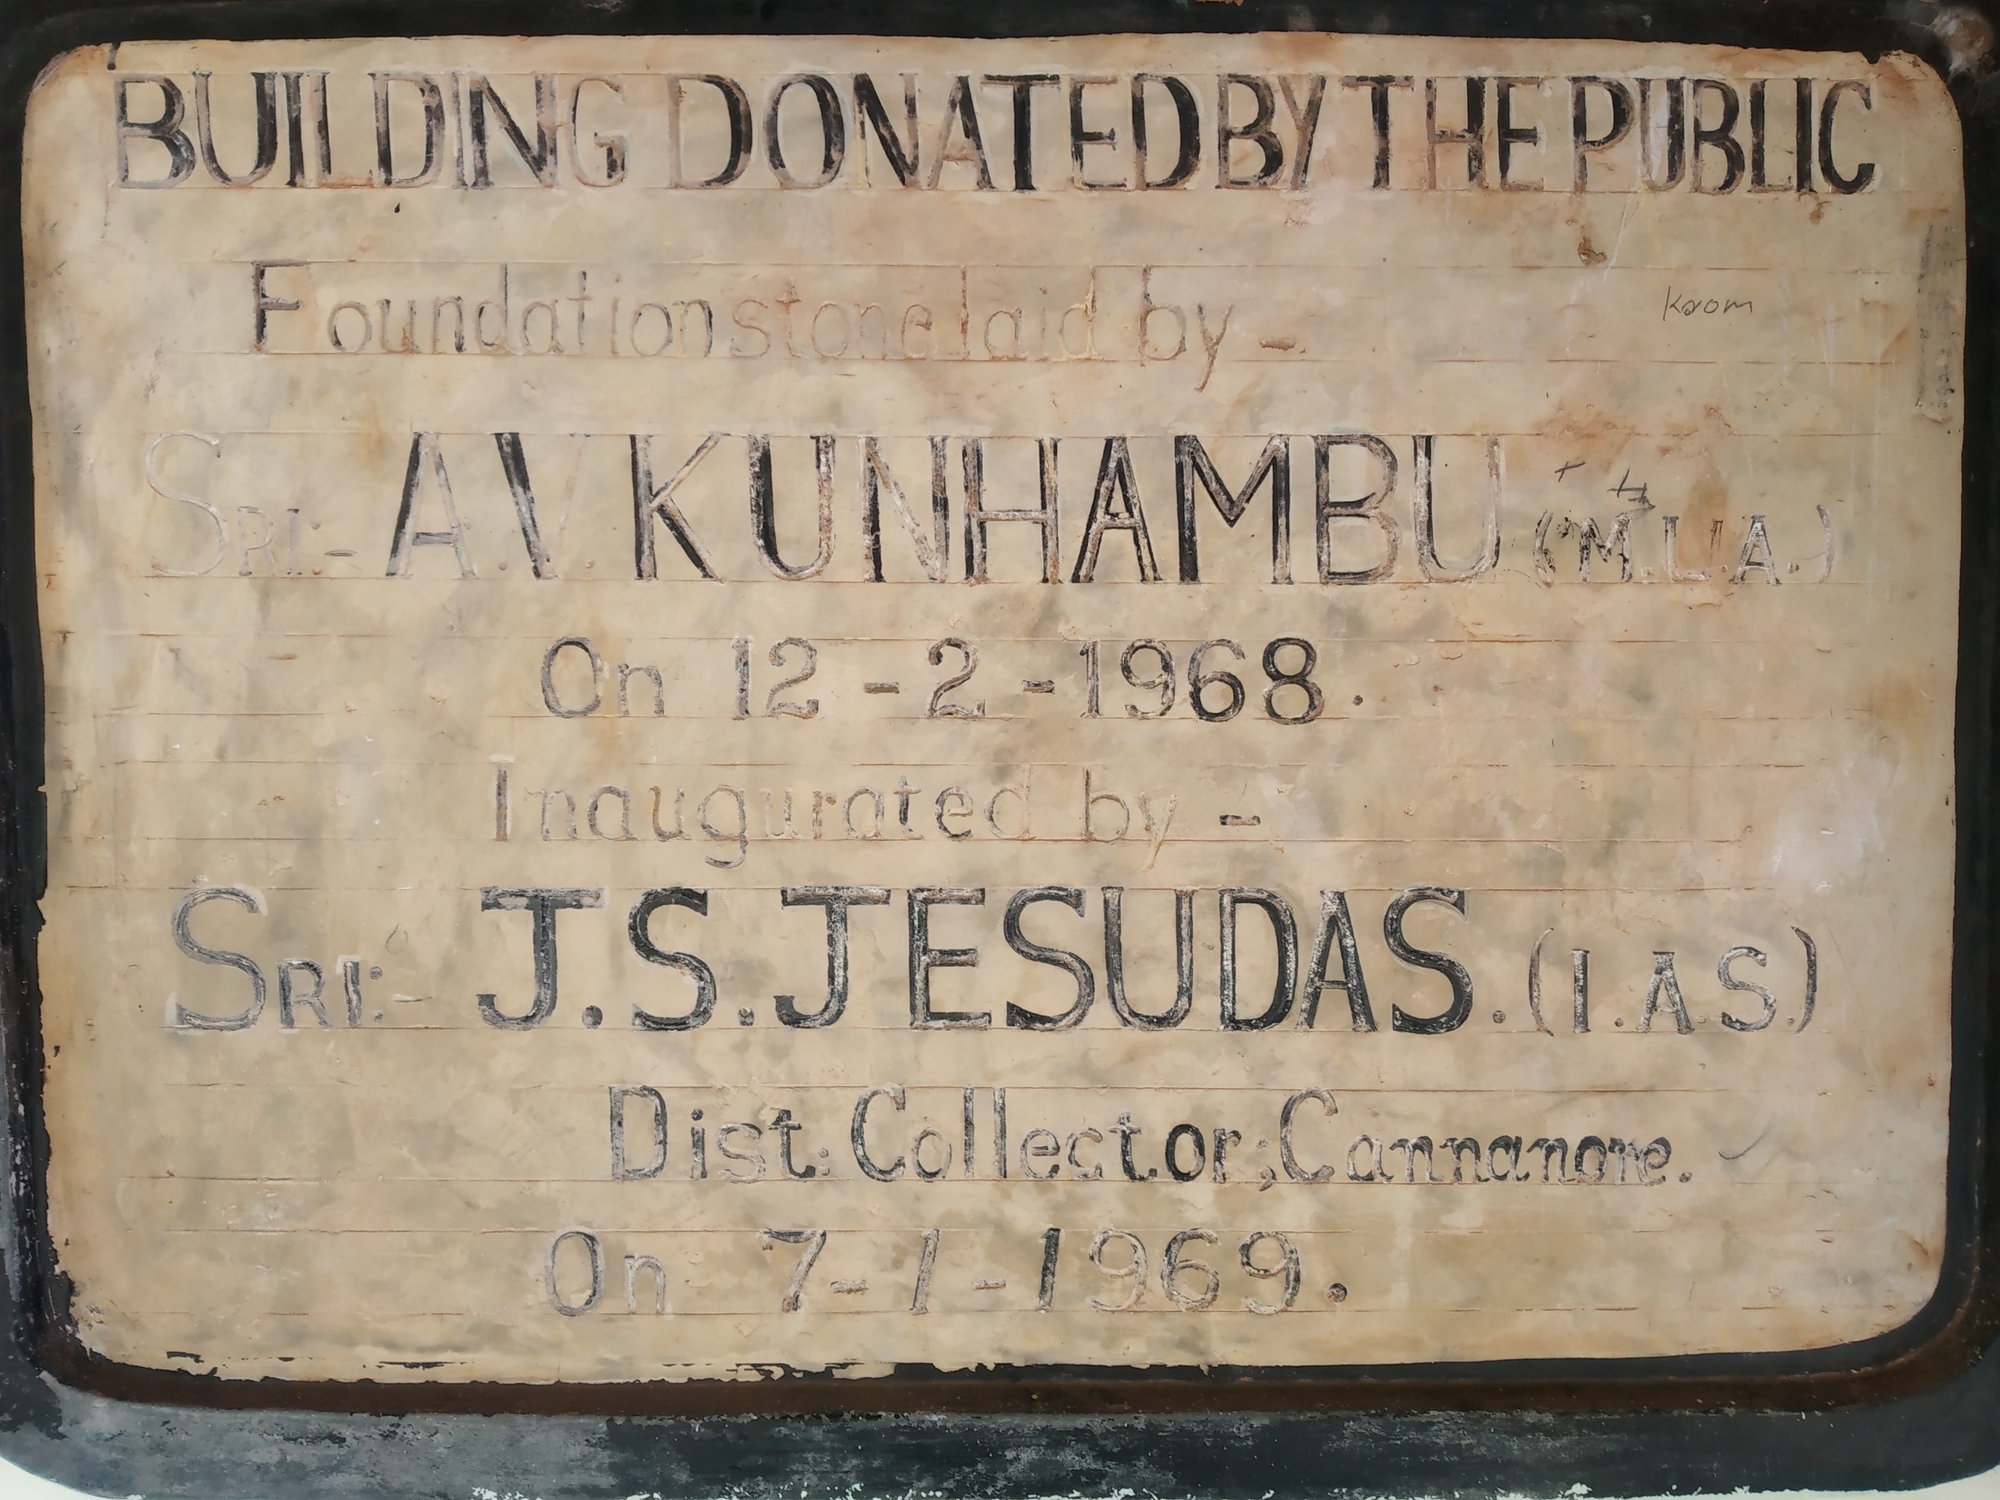 BUILDING DONATED BY THE PUBLIC
Foundation stone laid by -
SRI:- A.V. KUNHAMBU (M.L.A.)
On 12-2-1968.
Inaugurated by -
SRI:- J.S.JESUDAS. (I.A.S.)
Dist: Collector; Cannanore.
On 7-1-1969.